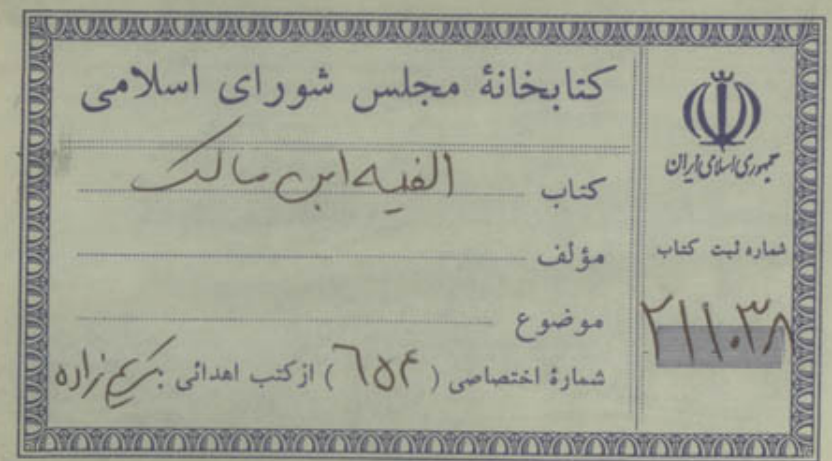 کتابخانهٔ مجلس شورای اسلامی
جمهوری اسلامی ایران
کتاب الفیه ابن مالک
مؤلف
موضوع
شمارهٔ اختصاصی ( ٦٥۴ ) از کتب اهدائی : کریم زاده
شماره ثبت کتاب
۲۱۱۰۳۸